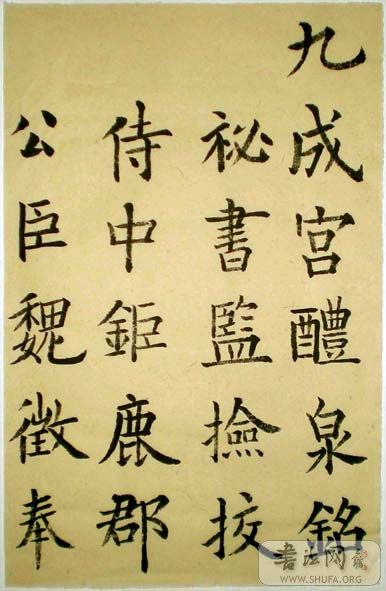 九成宮醴泉銘
祕書監撿挍
侍中鉅鹿郡
公臣魏徵奉
書法网
WWW.SHUFA.ORG